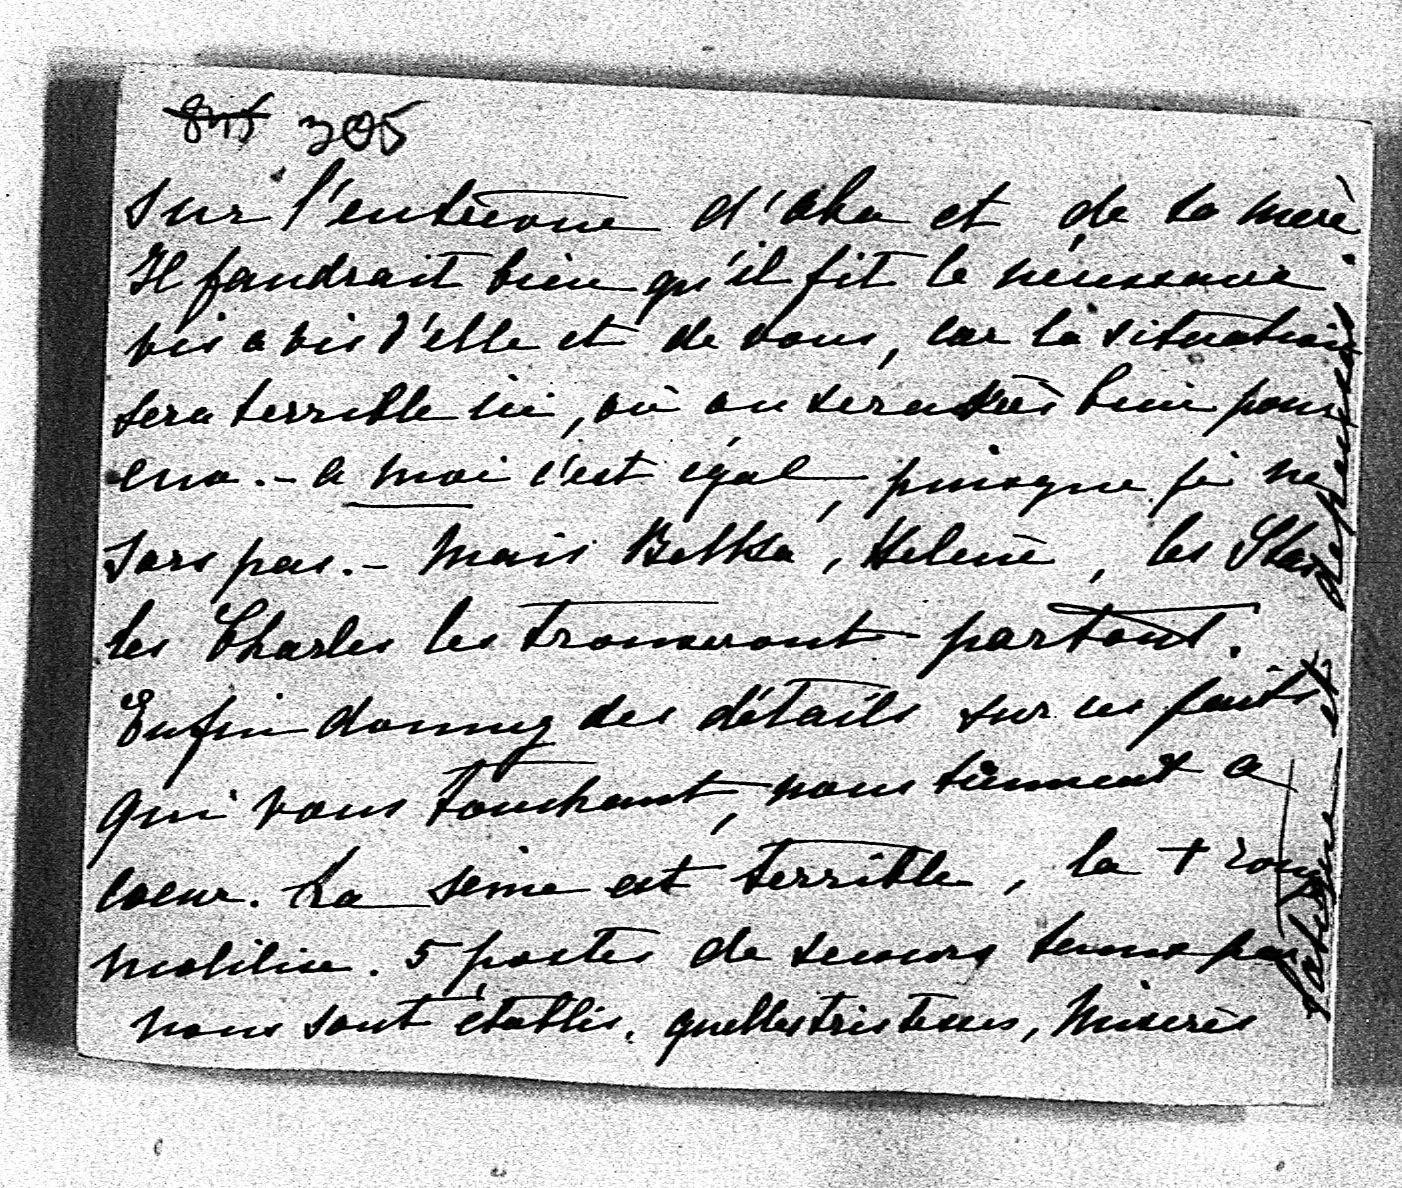 305
sur l'entrevue d'Aka et de sa mère
Il faudrait bien qu'il fit le nécessaire
vis a vis d'elle et de vous, car la situation
sera terrible ici, où on sera très bien pour
eux. - a moi c'est égal, puisque je ne
sors pas. - Mais Betksa, Helene, les Star
les Charles les trouveront partout.
Enfin donnez des détails sur ces faits
qui vous touchant, nous tiennent a
coeur. La Seine est terrible, la + rouge
mobilise. 5 postes de secours tenus par
nous sont établis. quelles tristesses, Misères
fatigue et dépenses